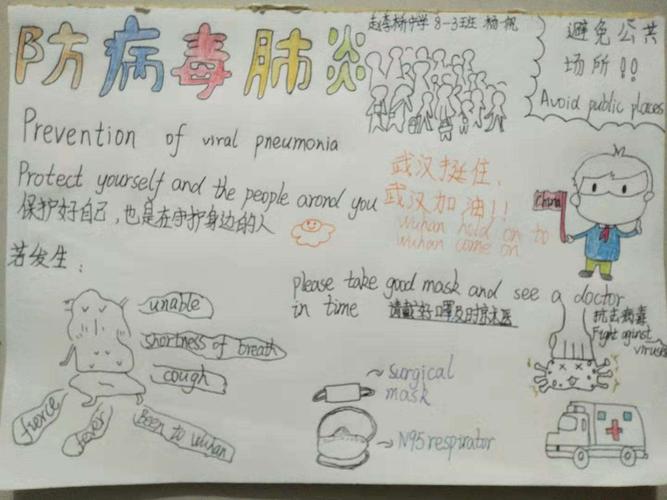 防病毒肺炎
赵李桥中学 8-3班 杨一帆
避免公共
场所!!
Avoid public places
Prevention of viral pneumonia
Protect yourself and the people arond you
保护好自己,也是在守护身边的人
武汉挺住,
武汉加油!!
wuhan hold on to
wuhan come on
China
若发生:
unable
shortness of breath
cough
fierce
fever
Been to wuhan
please take good mask and see a doctor
in time 请戴好口罩及时求医
抗击病毒
Fight against
virus
surgical
mask
N95 respirator